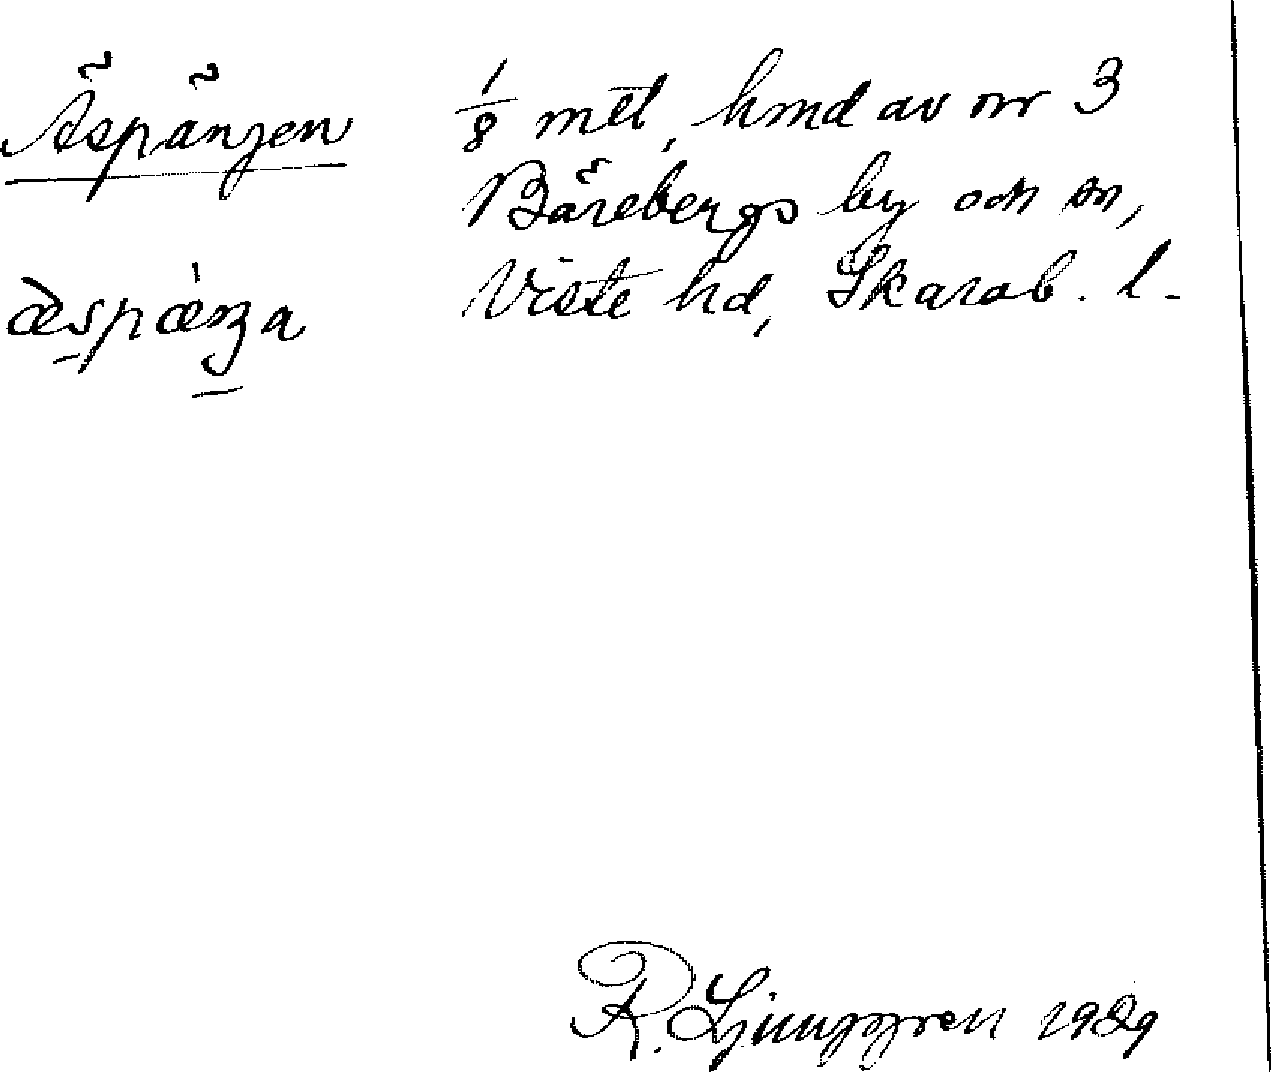 Äspängen
æspæŋa
1/8 mtl, hmd av nr 3
Bärebergs by och sn,
Viste hd, Skarab. l.
R. Ljunggren 1929